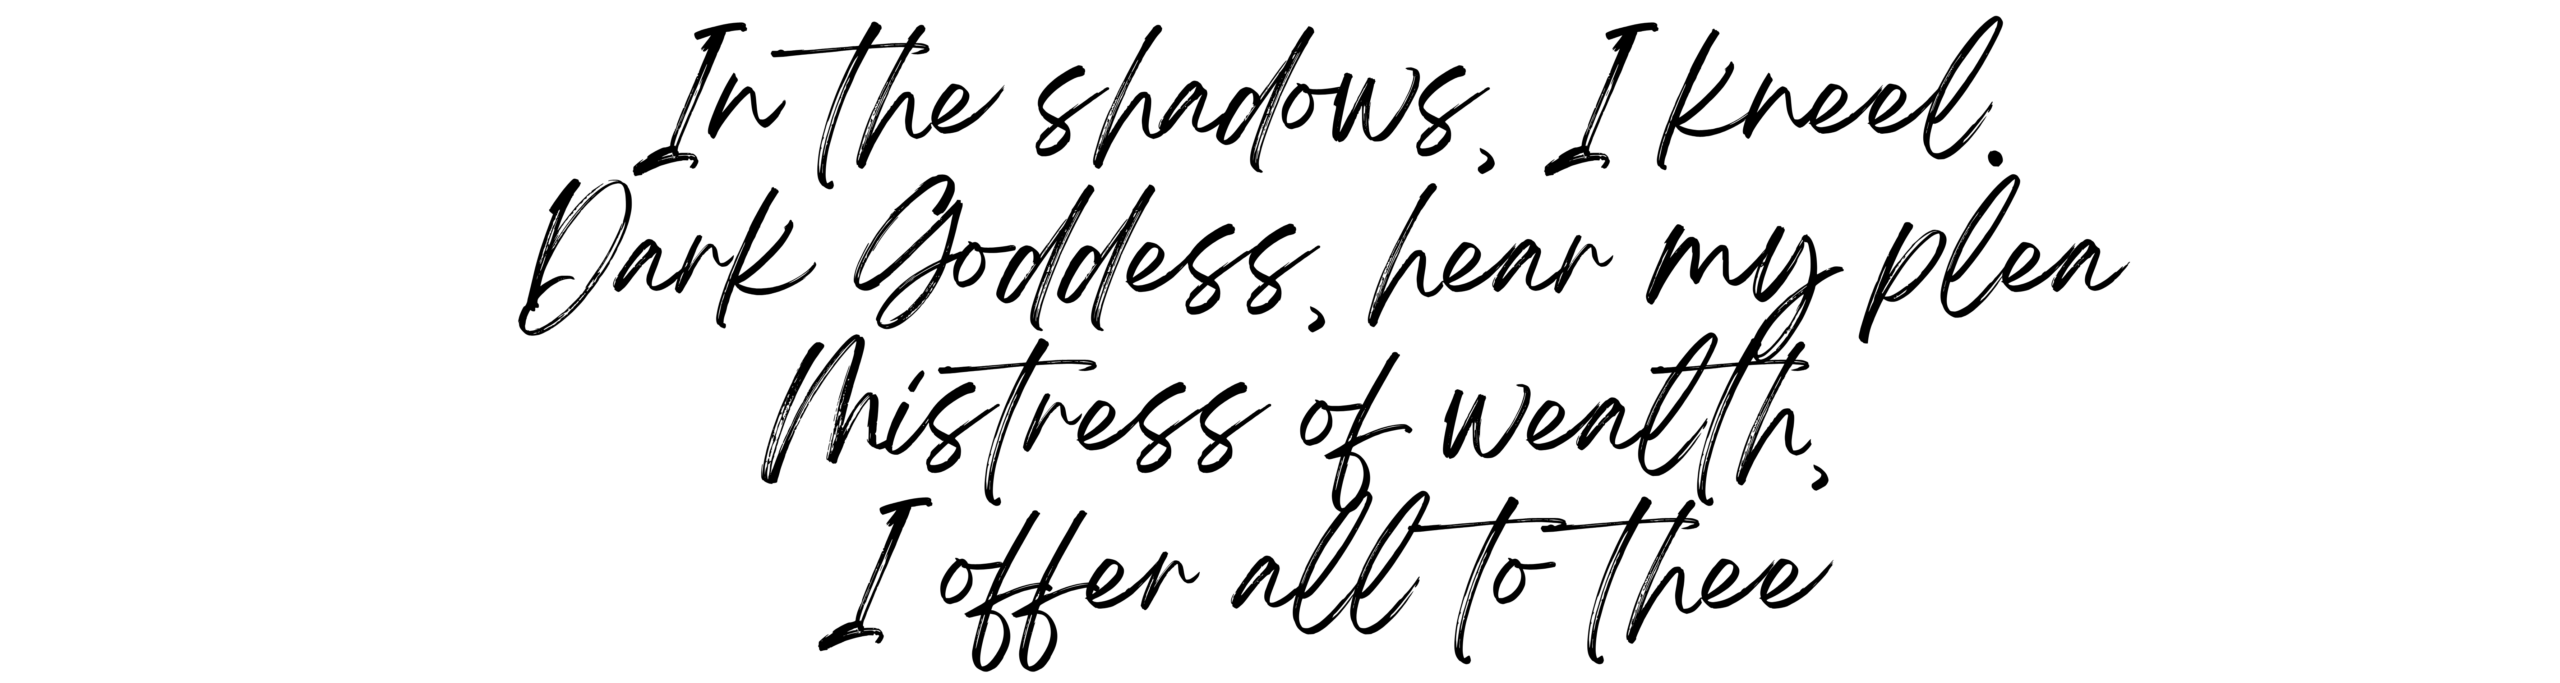 In the shadows, I kneel.
Dark Goddess, hear my plea
Mistress of wealth,
I offer all to thee